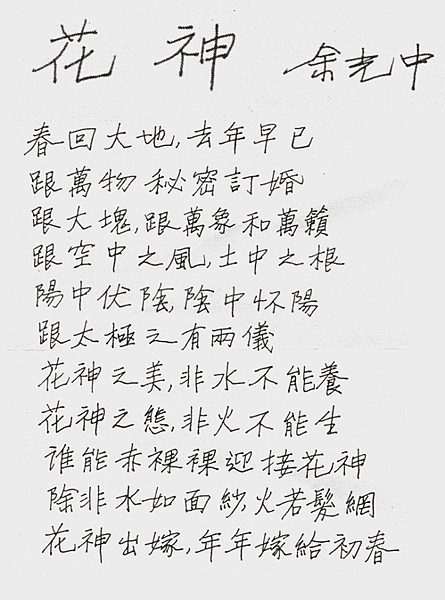 花神 余光中
春回大地,去年早已
跟萬物秘密訂婚
跟大塊,跟萬象和萬籟
跟空中之風,土中之根
陽中伏陰,陰中怀陽
跟太極之有兩儀
花神之美,非水不能養
花神之態,非火不能生
谁能赤裸裸迎接花神
除非水如面紗,火若髮網
花神出嫁,年年嫁給初春